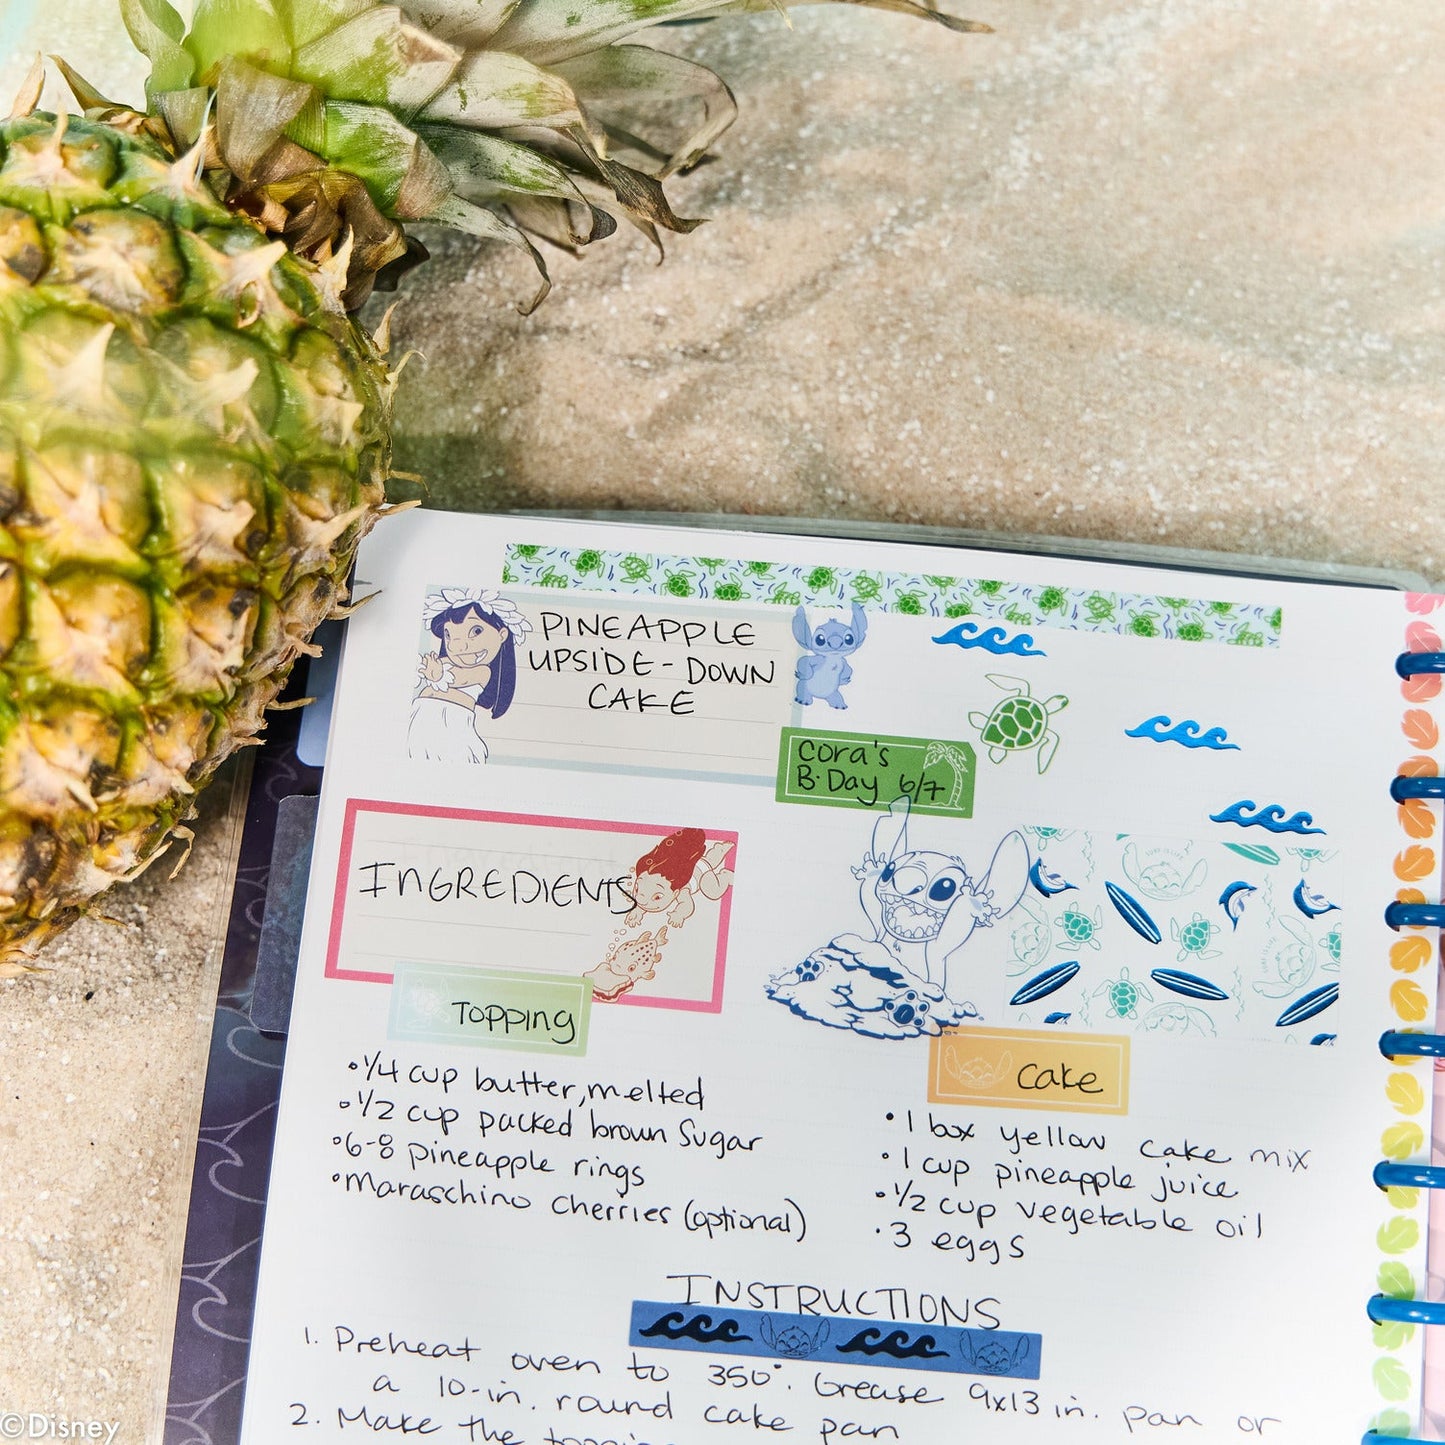 PINEAPPLE
UPSIDE-DOWN
CAKE
Cora's
B·Day 6/7
INGREDIENTS
TOPPING
•1/4 cup butter, melted
•1/2 cup packed brown sugar
•6-8 pineapple rings
•Maraschino cherries (optional)
Cake
•1 box yellow cake mix
•1 cup pineapple juice
•1/2 cup vegetable oil
•3 eggs
INSTRUCTIONS
1. Preheat oven to 350°. Grease 9x13 in. pan or
a 10-in. round cake pan
2. Make the
©Disney